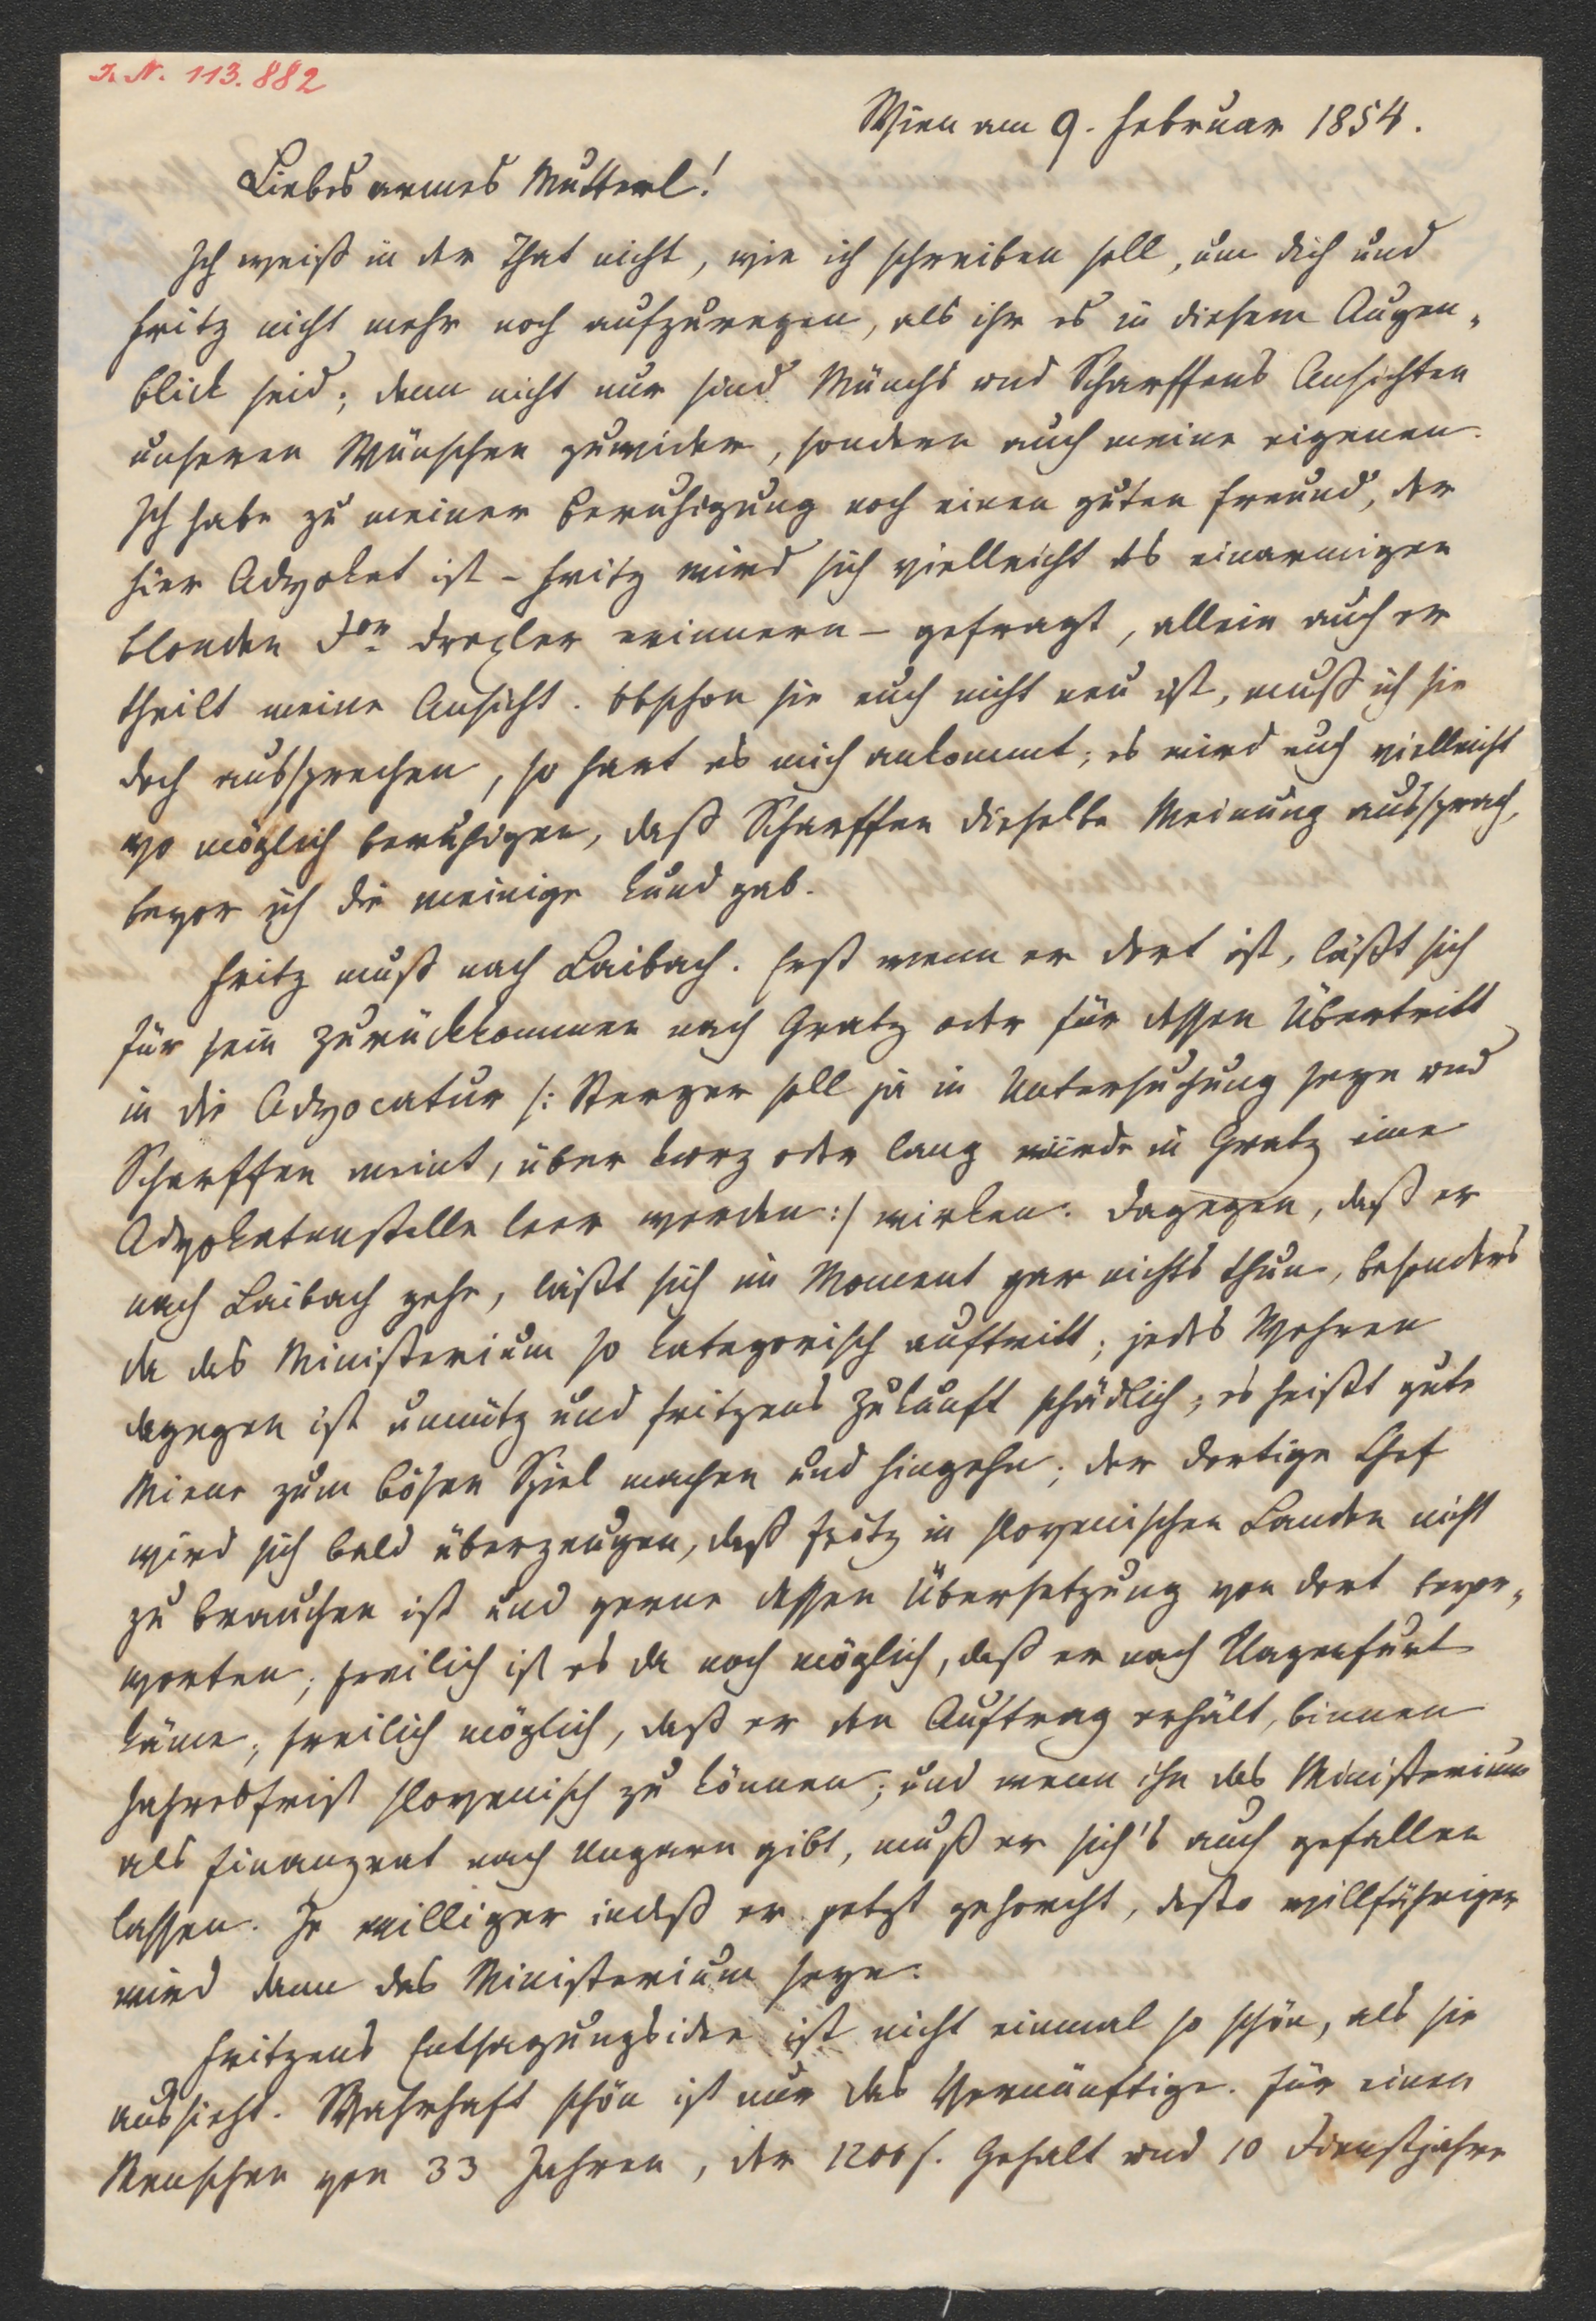 I. N. 113.882
Wien am 9. Februar 1854.
Liebes armes Mutterl!
Ich weiß in der That nicht, wie ich schreiben soll, um dich und
Fritz nicht mehr noch aufzuregen, als ihr es in diesem Augen-
blick seid; denn nicht nur sind Münchs und Scharffens Ansichten
unseren Wünschen zuwider, sondern auch meine eigenen.
Ich habe zu meiner Beruhigung noch einen guten Freund, der
hier Advokat ist – Fritz wird sich vielleicht des einarmigen
blonden Dor Drexler erinnern – gefragt, allein auch er
theilt meine Ansicht. Obschon sie euch nicht neu ist, muß ich sie
doch aussprechen, so hart es mich ankommt; es wird euch vielleicht
wo möglich beruhigen, daß Scharffen dieselbe Meinung aussprach,
bevor ich die meinige kund gab.
Fritz muß nach Laibach. Erst wenn er dort ist, läßt sich
für sein Zurückkommen nach Gratz oder für dessen Übertritt
in die Advocatur /: Sterger soll ja in Untersuchung seyn und
Scharffen meint, über kurz oder lang würde in Gratz eine
Advokatenstelle leer werden :/ wirken. Dagegen, daß er
nach Laibach gehe, läßt sich im Moment gar nichts thun, besonders
da das Ministerium so kategorisch auftritt; jedes Wehren
dagegen ist unnütz und Fritzens Zukunft schädlich; es heißt gute
Miene zum bösen Spiel machen und hingehn; der dortige Chef
wird sich bald überzeugen, daß Fritz in slovenischen Landen nicht
zu brauchen ist und gerne dessen Übersetzung von dort bevor-
worten; freilich ist es da noch möglich, daß er nach Klagenfurt
käme; freilich möglich, daß er den Auftrag erhält, binnen
Jahresfrist slovenisch zu können; und wenn ihn das Ministerium
als Finanzrat nach Ungarn gibt, muß er sich's auch gefallen
lassen. Je williger indeß er jetzt gehorcht, desto willfähriger
wird dann das Ministerium seyn.
Fritzens Entsagungsidee ist nicht einmal so schön, als sie
aussieht. Wahrhaft schön ist nur das Vernünftige. Für einen
Menschen von 33 Jahren, der 1200 f. Gehalt und 10 Dienstjahre